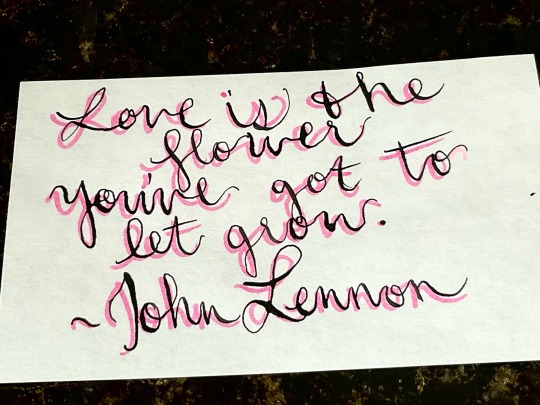 Love is the
flower
you've got to
let grow.
~John Lennon